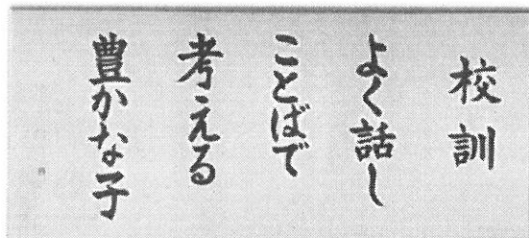 校訓
よく話し
ことばで
考える
豊かな子